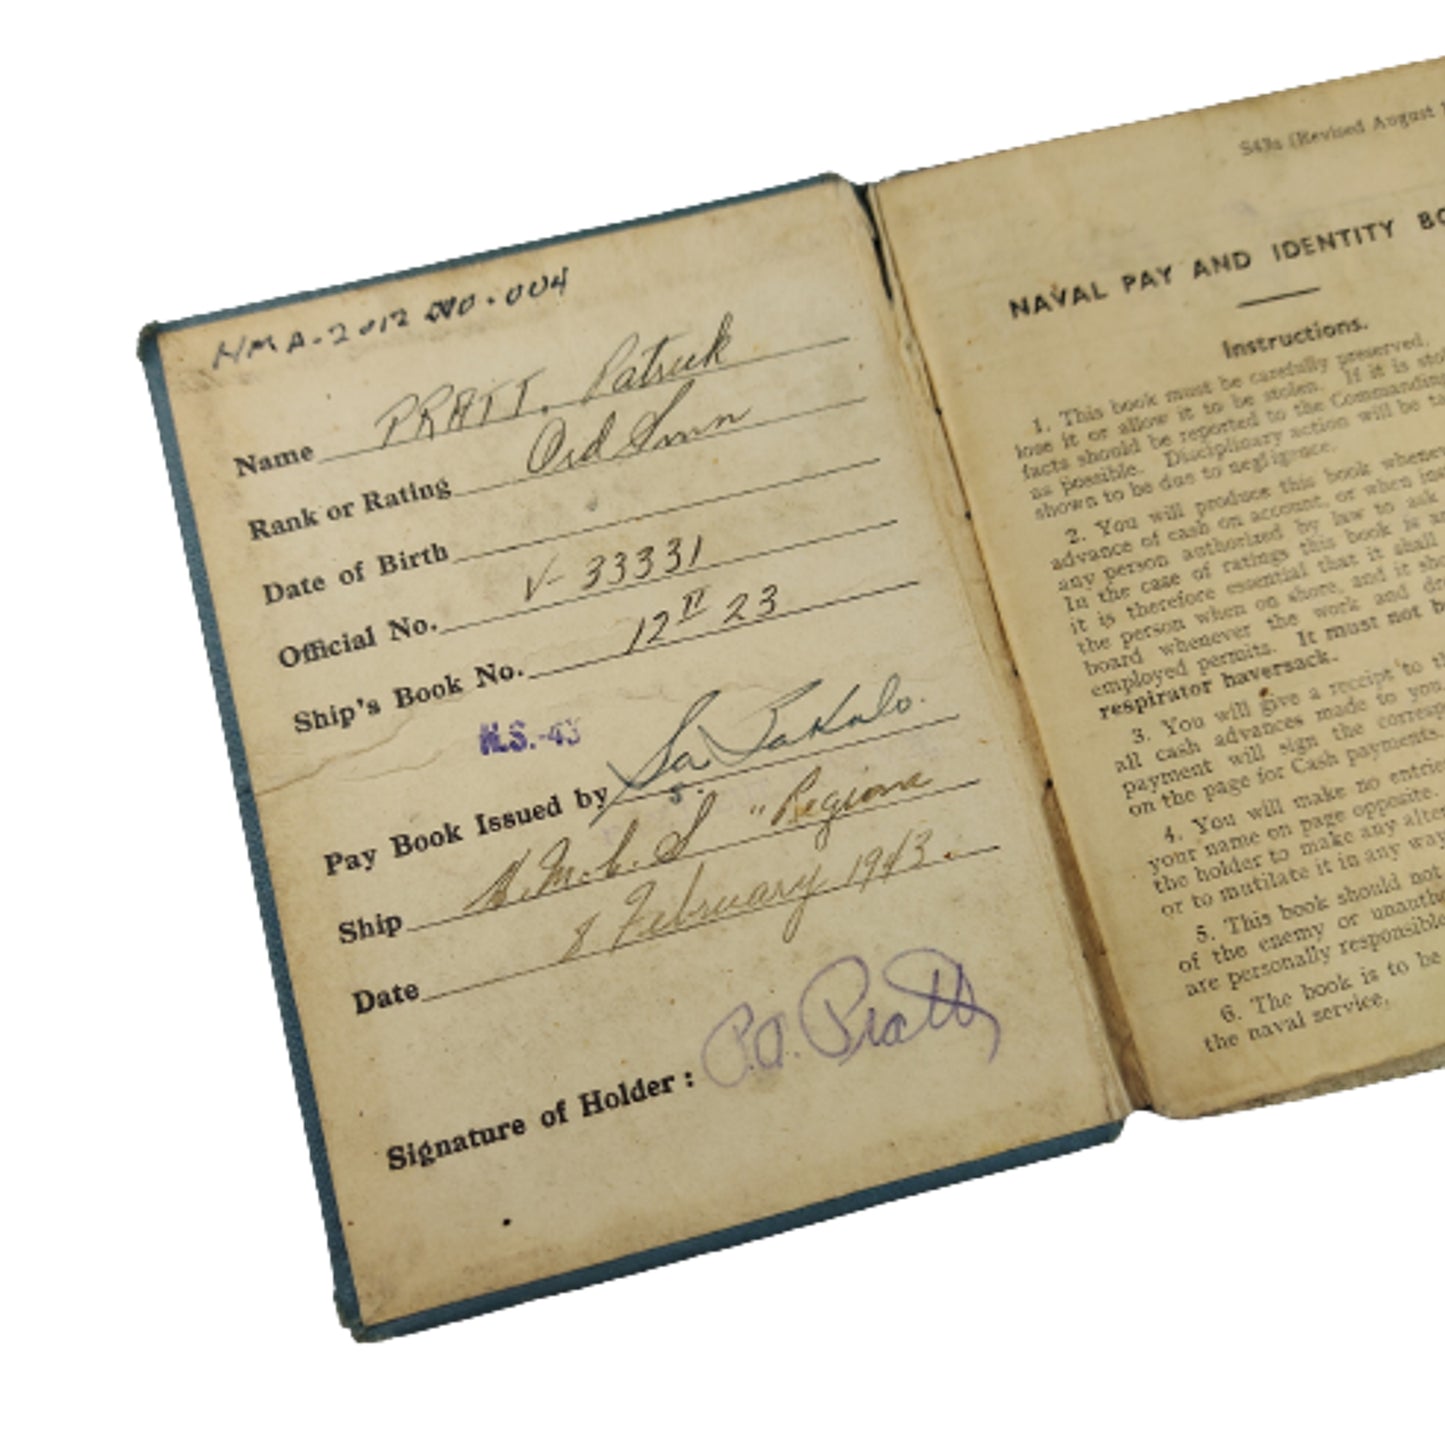 NMA-2012 .004
Name PRATT, Patrick
Rank or Rating Ord Smn
Date of Birth
Official No. V-33331
Ship's Book No. 12 II 23
N.S.-43
Pay Book Issued by
Ship H.M.C.S "Regina
Date 8 February 1943.
Signature of Holder: P.A. Pratt
S43a (Revised August
NAVAL PAY AND IDENTITY BO
Instructions.
1. This book must be carefully preserved.
lose it or allow it to be stolen. If it is stol
facts should be reported to the Commandin
as possible. Disciplinary action will be ta
shown to be due to negligence.
2. You will produce this book wheneve
advance of cash on account, or when ins
any person authorized by law to ask
In the case of ratings this book is a
it is therefore essential that it shall
the person when on shore, and it sho
board whenever the work and dr
employed permits. It must not b
respirator haversack.
3. You will give a receipt to th
all cash advances made to you
payment will sign the corresp
on the page for Cash payments.
4. You will make no entrie
your name on page opposite.
the holder to make any alter
or to mutilate it in any way
5. This book should not
of the enemy or unautho
are personally responsible
6. The book is to be
the naval service.